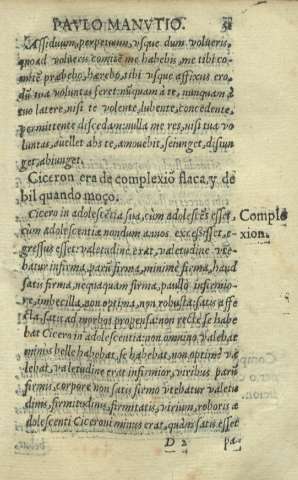 PAVLO MANVTIO.
Assiduum, perpetuum, vsque dum volueris,
quoad volueris comitē me habebis, me tibi co-
mitē præbebo, hærebo, tibi vsque affixus ero,
dū tua voluntas feret: nūquam à te, nunquam à
tuo latere, nisi te volente, lubente, concedente,
permittente discedam: nulla me res, nisi tua vo
luntas, auellet abs te, amouebit, seiunget, disiun
get, abiunget.
Ciceron era de complexiō flaca, y de
bil quando moço.
Cicero in adolescētia sua, cùm adolescēs esset,
Comple
cùm adolescentiæ nondum annos excessisset, e-
xion.
gressus esset: valetudine erat, valetudine vte-
batur infirma, parū firma, minimè firma, haud
satis firma, nequaquam firma, paulò infirmio-
re, imbecilla, non optima, non robusta: satis affe
cta, satis ad morbos propensa: non rectè se habe
bat Cicero in adolescentia: non omnino valebat
minus bellè habebat, se habebat, non optimè va
lebat, valetudine erat infirmior, viribus parū
firmis, corpore non satis firmo vtebatur valetu
dinis, firmitudinis, firmitatis, virium, roboris
adolescenti Ciceroni minus erat, quàm satis esset
D 2
pa-